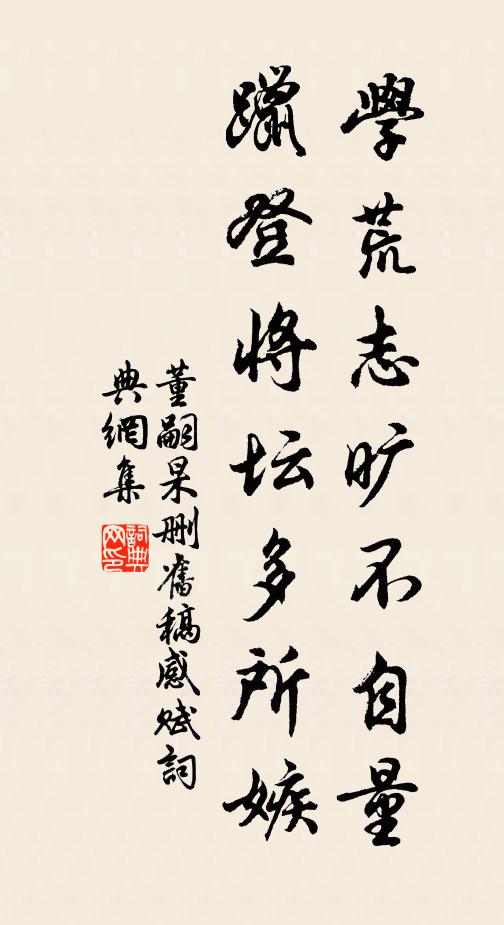 學荒志旷不自量
躐登将坛多所嫉
董嗣杲删舊稿感赋詞
典網集
詞典网印